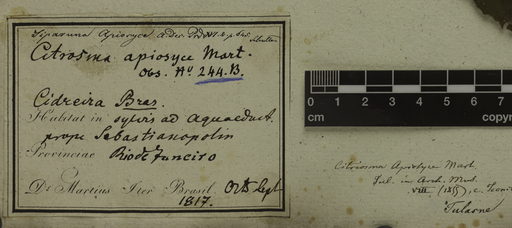 Siparuna Apiosyce A.Dec.
Citrosma apiosyce Mart.
Obs. No 244.B.
Cidreira Bras.
Habitat in sylvis ad aquaeduct.
prope Sebastianopolin
Provinciae Rio de Janeiro
Dr. Martius Iter Brasil. Oct. Sept
1817.
0 1 2 3 4 5
cm copy
Citriosma Apiosyce Mart.
Tul. in Arch. Mus.
VIII (1855), c. Icon
Tulasne